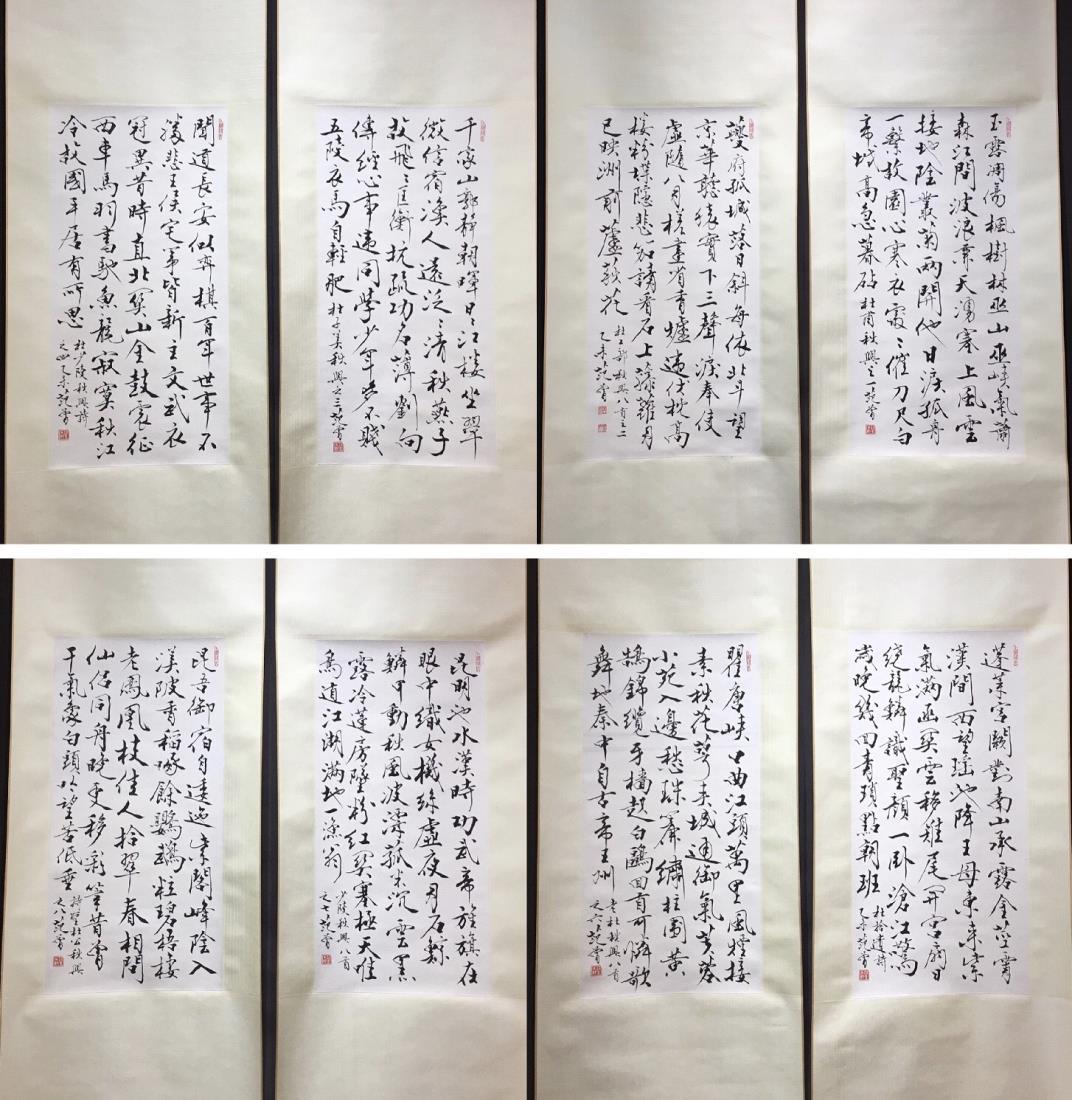 玉露凋傷楓樹林巫山巫峽氣蕭
森江間波浪兼天湧塞上風雲
接地陰叢菊兩開他日淚孤舟
一繫故園心寒衣處〻催刀尺白
帝城高急暮砧 杜甫秋興之一范曾
夔府孤城落日斜每依北斗望
京華聽猿實下三聲淚奉使
虛隨八月槎畫省香爐違伏枕
樓粉堞隱悲笳請看石上藤蘿月
已映洲前蘆荻花 杜工部秋興八首之二
乙未范曾
千家山郭靜朝暉日〻江樓坐翠
微信宿漁人還泛〻清秋燕子
故飛〻匡衡抗疏功名薄劉向
傳經心事違同學少年多不賤
五陵衣馬自輕肥 杜子美秋興之三范曾
聞道長安似弈棋百年世事不
勝悲王侯宅第皆新主文武衣
冠異昔時直北關山金鼓震征
西車馬羽書馳魚龍寂寞秋江
冷故國平居有所思 杜少陵秋興詩
之四乙未范曾
蓬萊宮闕對南山承露金莖霄
漢間西望瑤池降王母東來紫
氣滿函關雲移雉尾開宮扇日
繞龍鱗識聖顏一臥滄江驚
歲晚幾回青瑣點朝班 杜拾遺詩
乙未范曾
瞿唐峽口曲江頭萬里風煙接
素秋花萼夾城通御氣芙蓉
小苑入邊愁珠簾繡柱圍黃
鵠錦纜牙檣起白鷗回首可憐歌
舞地秦中自古帝王州 老杜秋興八首
之六范曾
昆明池水漢時功武帝旌旗在
眼中織女機絲虛夜月石鯨
鱗甲動秋風波漂菰米沉雲黑
露冷蓮房墜粉紅關塞極天唯
鳥道江湖滿地一漁翁 少陵秋興八首
之七范曾
昆吾御宿自逶迤紫閣峰陰入
渼陂香稻啄餘鸚鵡粒碧梧棲
老鳳凰枝佳人拾翠春相問
仙侶同舟晚更移彩筆昔曾
干氣象白頭吟望苦低垂 詩聖杜公秋興
之八范曾